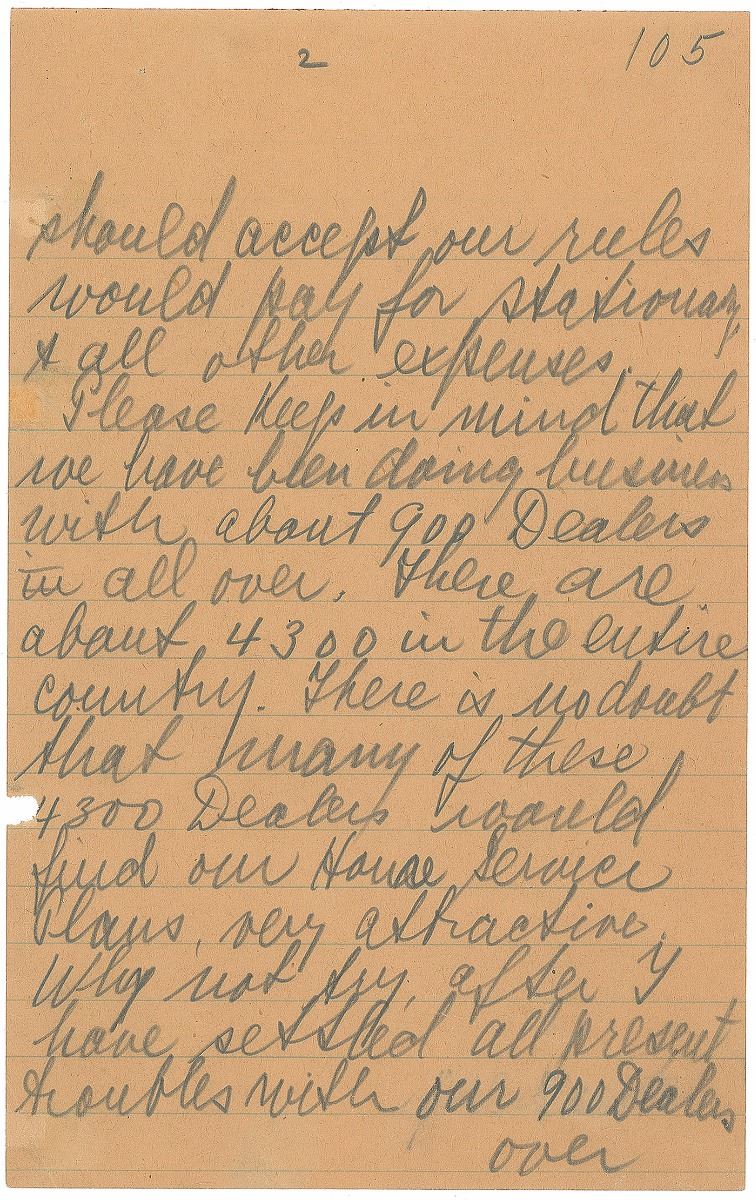 2 105
should accept our rules
would pay for stationary,
& all other expenses.
Please Keep in mind that
we have been doing business
with about 900 Dealers
in all over. There are
about 4300 in the entire
country. There is no doubt
that many of these
4300 Dealers would
find our House Service
Plans, very attractive.
Why not try, after I
have settled all present
troubles with our 900 Dealers
over